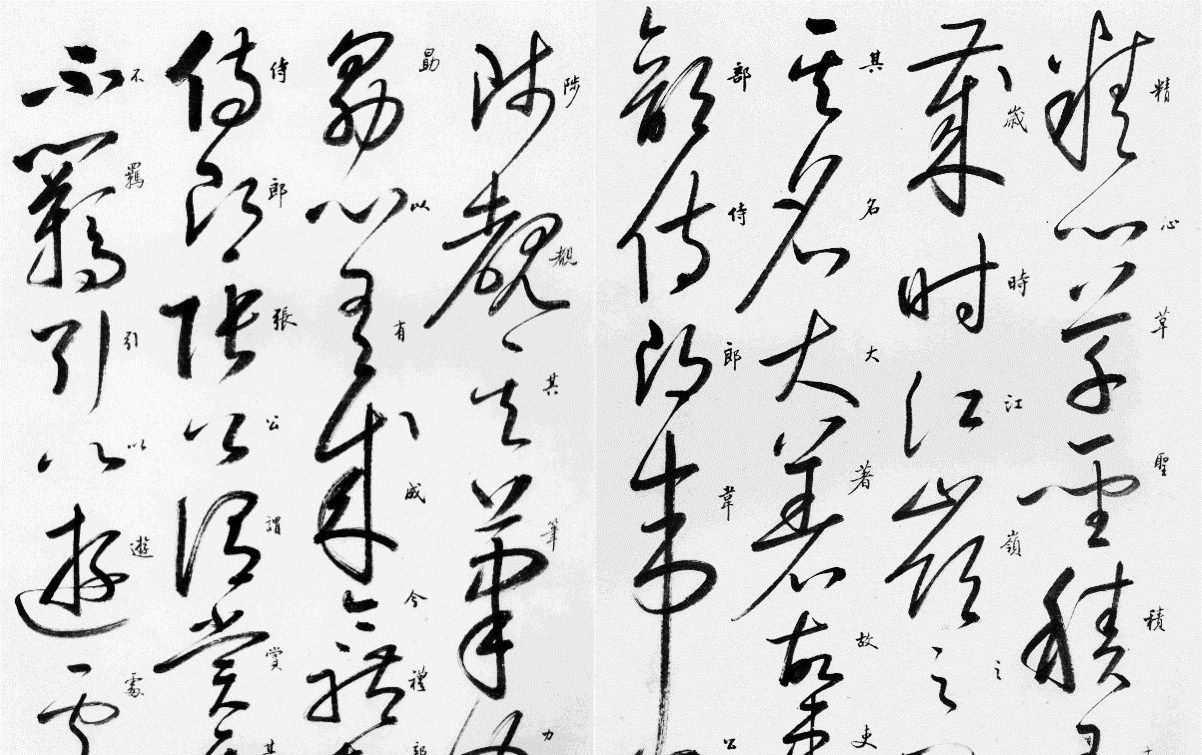 精心草聖積
歲時江嶺之
其名大著故吏
部侍郎韋公
陟覩其筆力
勗以有成今禮部
侍郎張公謂賞其
不羈引以遊處